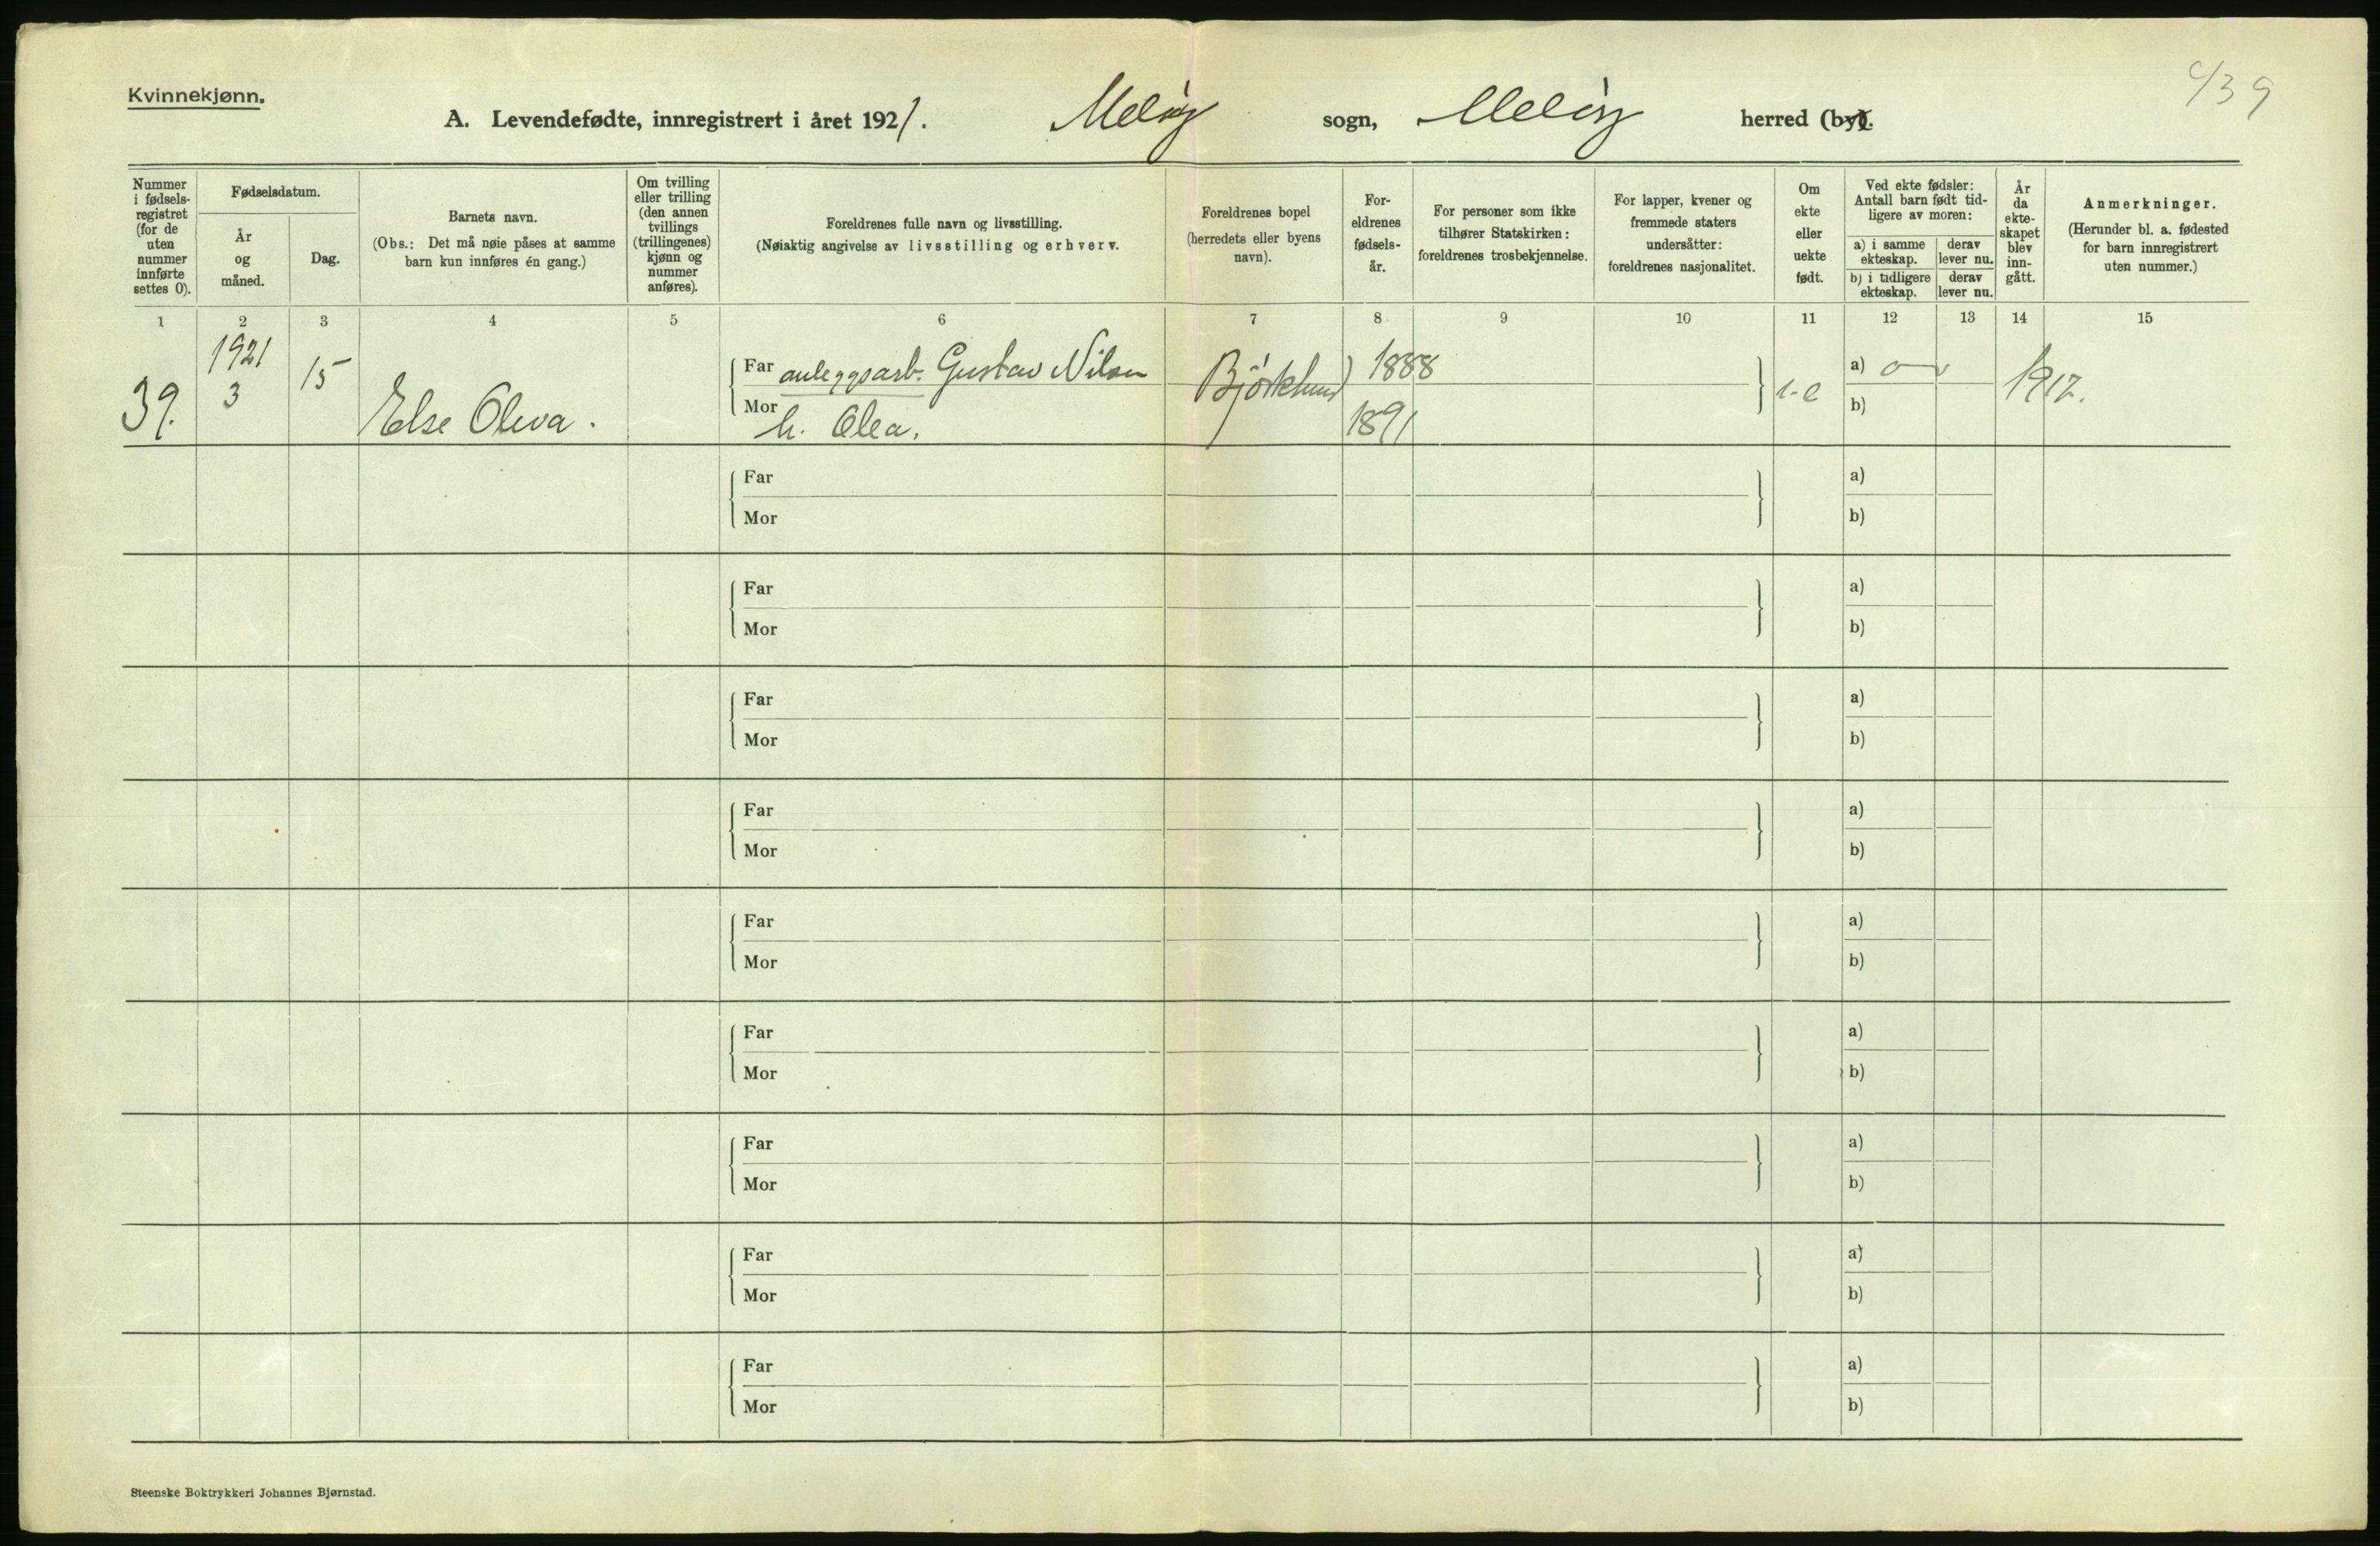 Kvinnekjønn.
439
A. Levendefødte, innregistrert i året 1921. Meløy sogn, Meløy herred (by).
Nummer i fødsels-registret (for de uten nummer innførte settes 0).
Fødselsdatum.
År og måned.
Dag.
Barnets navn.
(Obs.: Det må nøie påses at samme barn kun innføres én gang.)
Om tvilling eller trilling (den annen tvillings (trillingenes) kjønn og nummer anføres).
Foreldrenes fulle navn og livsstilling.
(Nøiaktig angivelse av livsstilling og erhverv.
Foreldrenes bopel (herredets eller byens navn).
For-eldrenes fødsels-år.
For personer som ikke tilhører Statskirken: foreldrenes trosbekjennelse.
For lapper, kvener og fremmede staters undersåtter: foreldrenes nasjonalitet.
Om ekte eller uekte født.
Ved ekte fødsler: Antall barn født tid-ligere av moren:
a) i samme ekteskap.
derav lever nu.
b) i tidligere ekteskap.
derav lever nu.
År da ekte-skapet blev inn-gått.
Anmerkninger.
(Herunder bl. a. fødested for barn innregistrert uten nummer.)
1 2 3 4 5 6 7 8 9 10 11 12 13 14 15
39. 1921 3 15 Else Oleva.
Far anleggsarb. Gustav Nilsen Bjørklund 1888 a) 1912.
Mor h. Olea. 1891 b)
Far a)
Mor b)
Far a)
Mor b)
Far a)
Mor b)
Far a)
Mor b)
Far a)
Mor b)
Far a)
Mor b)
Far a)
Mor b)
Far a)
Mor b)
Far a)
Mor b)
Steenske Boktrykkeri Johannes Bjørnstad.